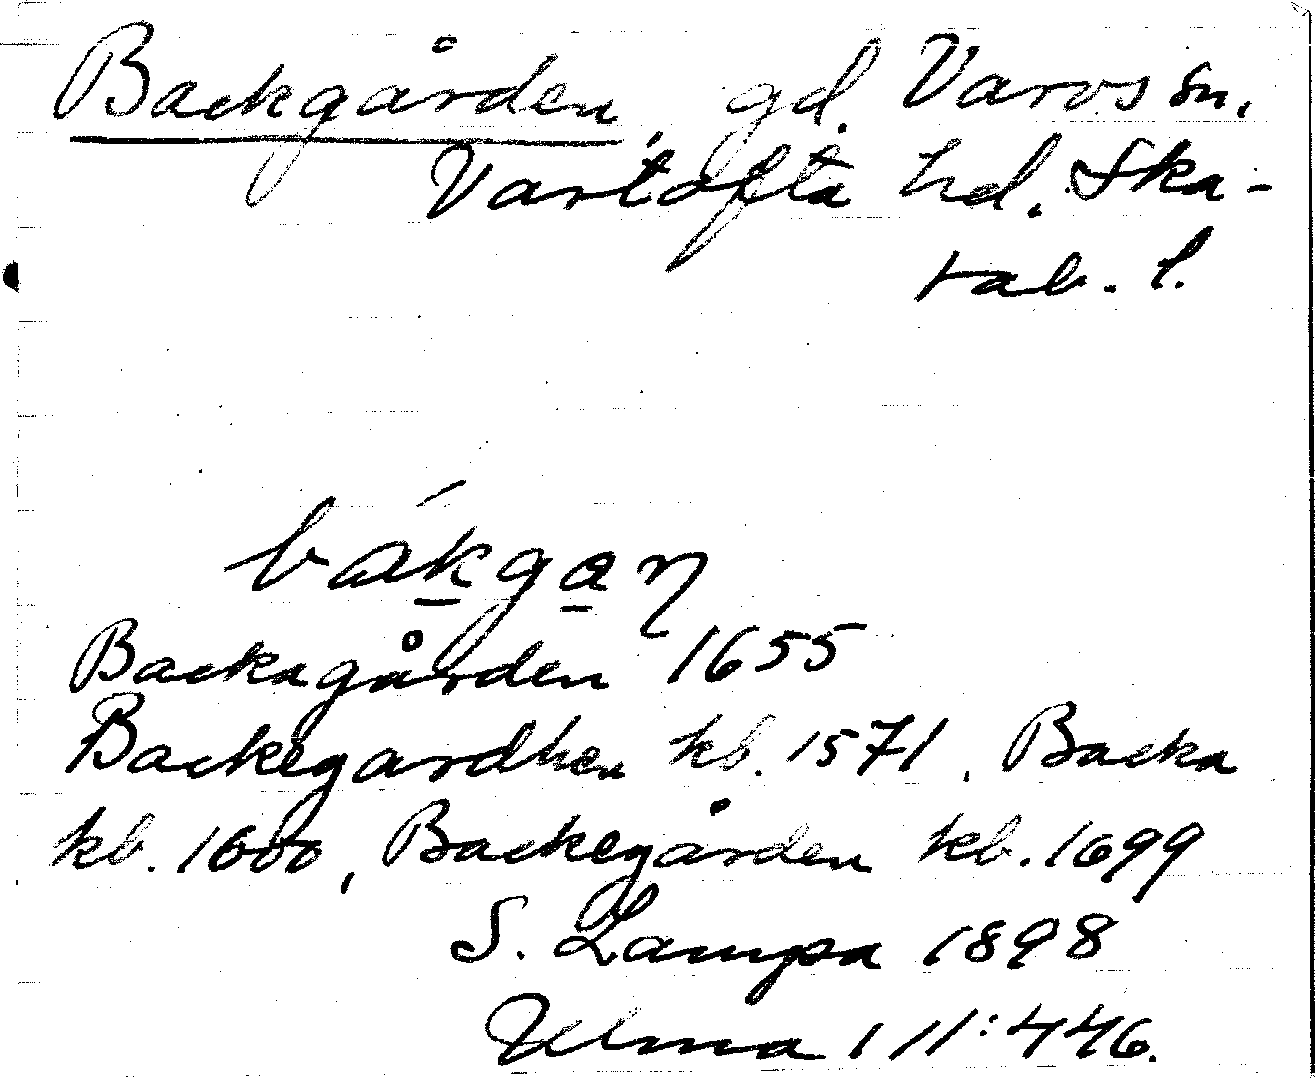 Backgården, gd. Varvs sn.
Vartofta hd. Ska-
rab. l.
bákgan
Backagården 1655
Backegardhen kb. 1571. Backa
kb. 1600, Backegården kb. 1699
S. Lampa 1898
Ulma 111:446.